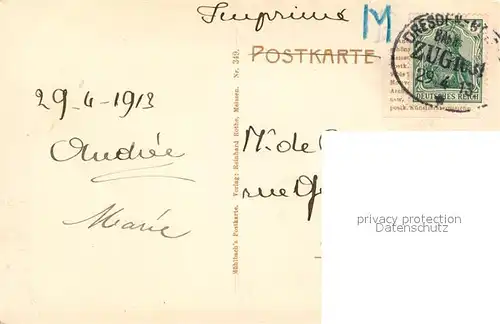 Imprimé
M
POSTKARTE
BAHN
ZUG
29 4 13
DEUTSCHES REICH
29-4-1913
Andrée
Marie
M. de
rue
Mühlbach's Postkarte. Verlag: Reinhard Rothe, Meissen. Nr. 349.
privacy protection
Datenschutz